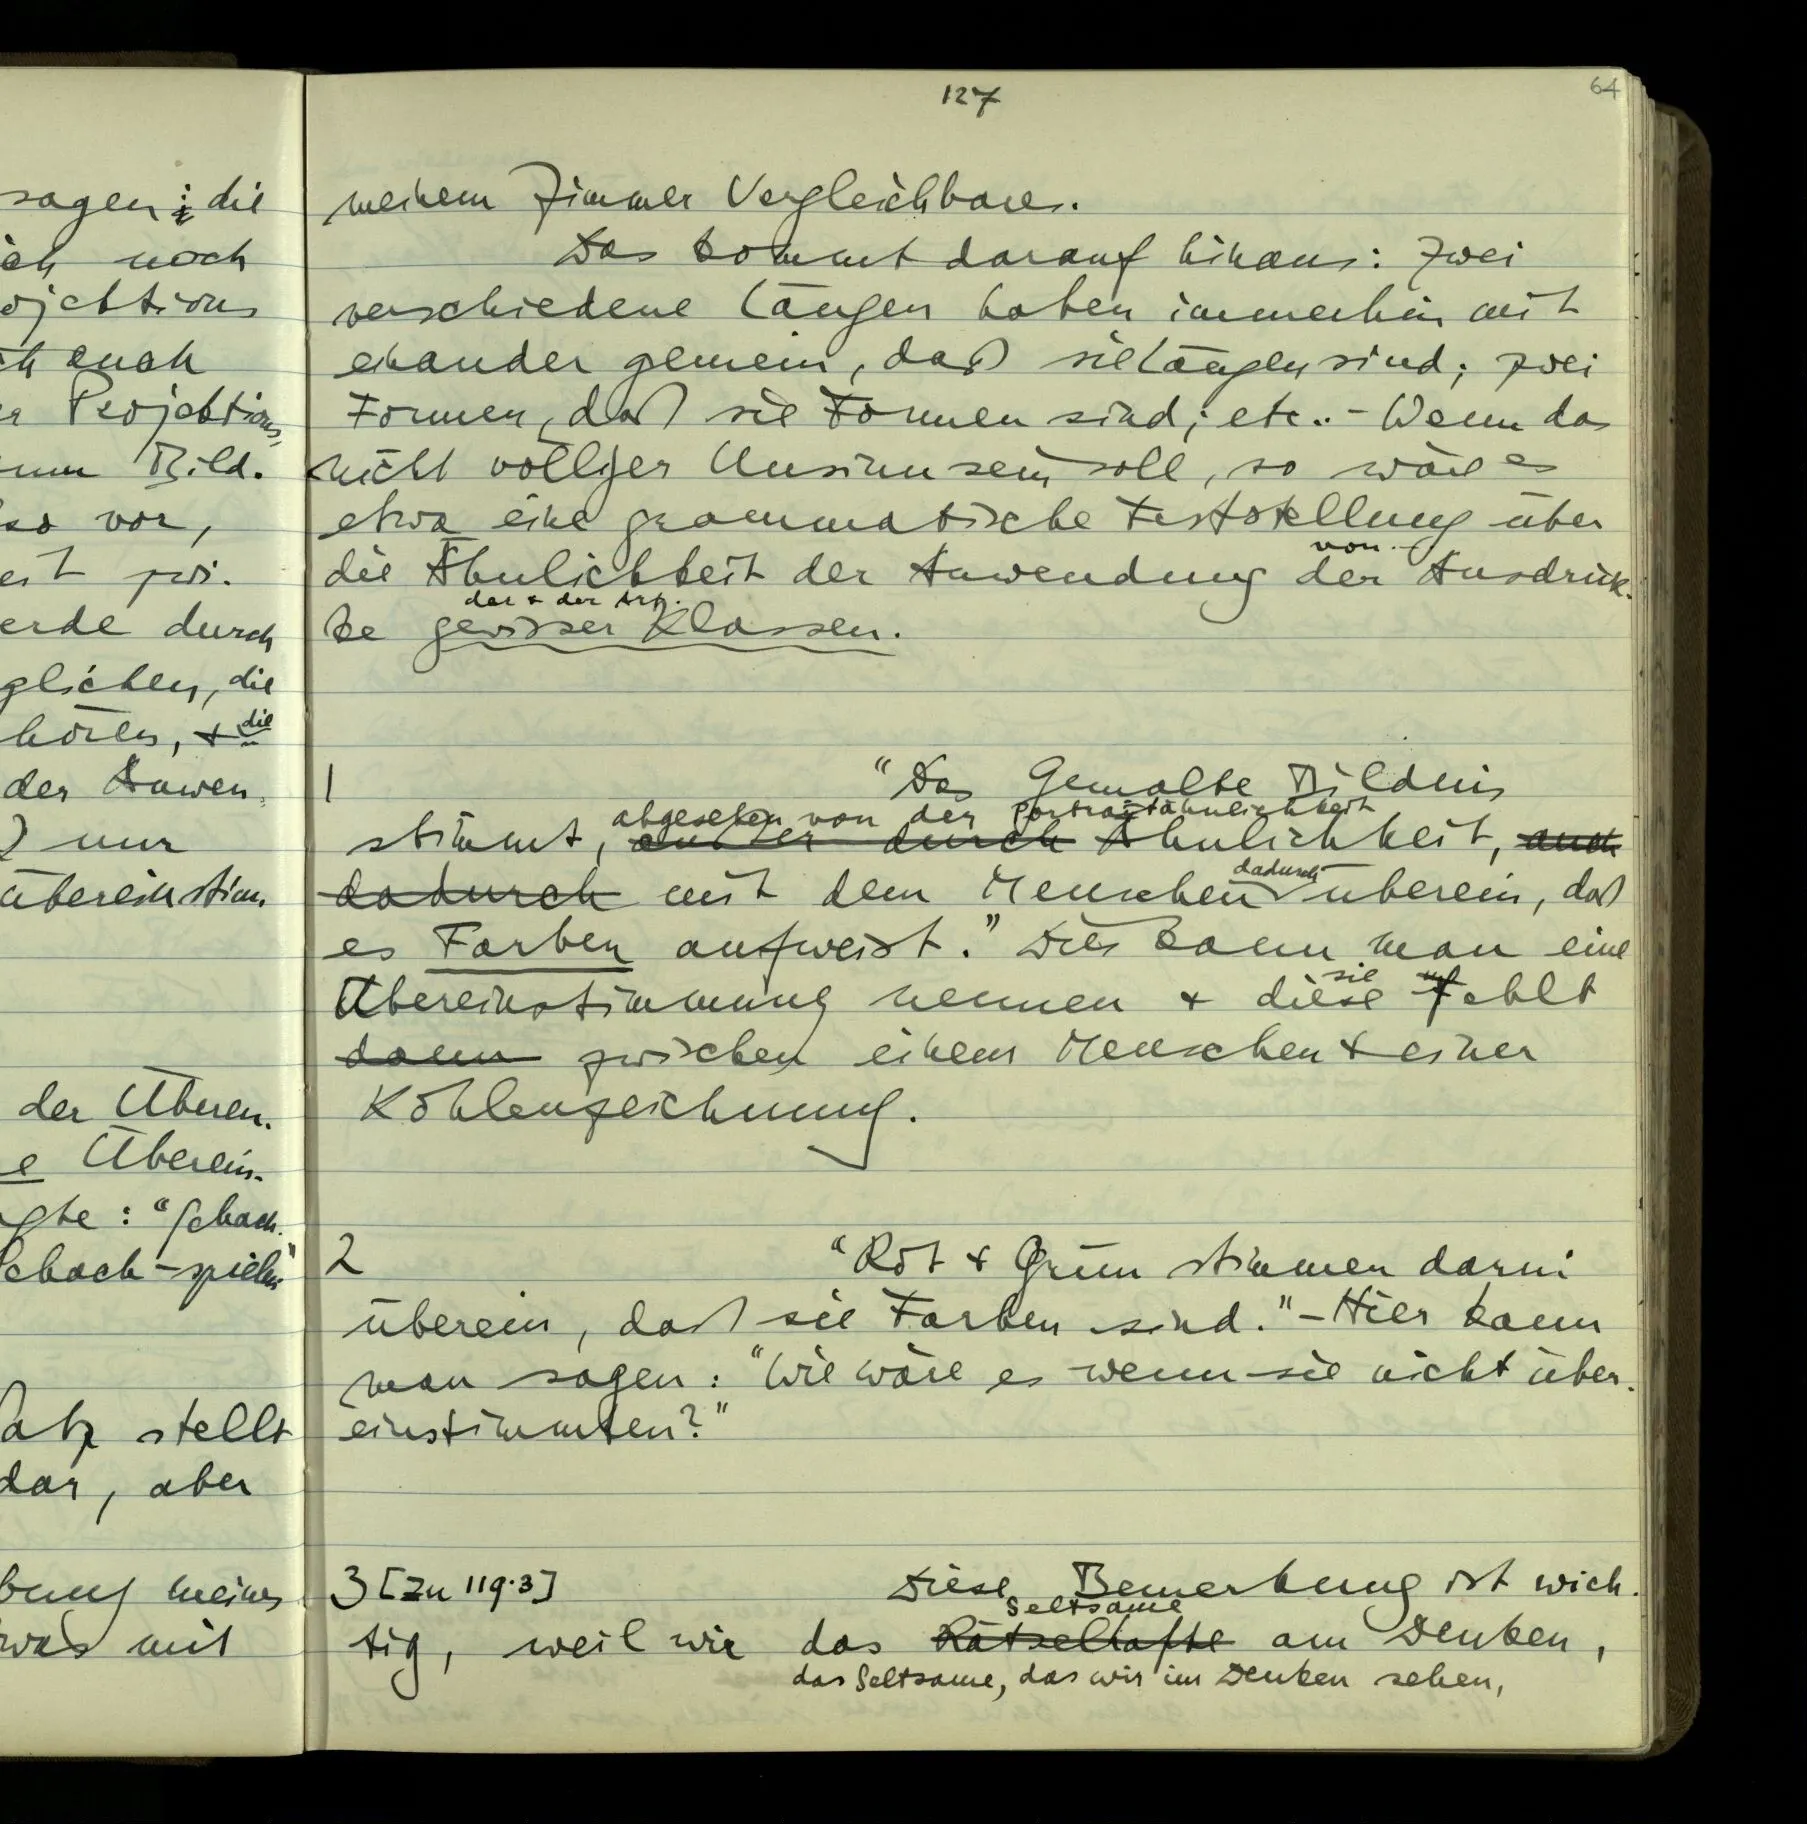 sagen; die
ich noch
ojektions
ch auch
r Projektions,
zum Bild.
so vor,
eit zwi-
erde durch
glichen, die
hören, + die
der Anwen-
nur
übereinstim-
der Überein-
e Überein-
gte: "Schach-
Schach-spielen"
Satz stellt
dar, aber
bung meines
was mit
127
64
meinem Zimmer Vergleichbares.
Das kommt darauf hinaus: Zwei
verschiedene Längen haben immerhin mit
einander gemein, daß sie Längen sind; zwei
Formen, daß sie Formen sind; etc.. – Wenn das
nicht völliger Unsinn sein soll, so wäre es
etwa eine grammatische Feststellung über
von
die Ähnlichkeit der Anwendung der Ausdrük-
der + der Art.
ke gewisser Klassen.
1 "Das Gemalte Bildnis
abgesehen von der Porträtähnlichkeit
stimmt, außer durch Ähnlichkeit, auch
dadurch
dadurch mit dem Menschen überein, daß
es Farben aufweist." Dies kann man eine
sie
Übereinstimmung nennen + diese fehlt
dann zwischen einem Menschen + einer
Kohlenzeichnung.
2 "Rot + Grün stimmen darin
überein, daß sie Farben sind." – Hier kann
man sagen: "Wie wäre es wenn sie nicht über-
einstimmten?"
3 [Zu 119.3] Diese Bemerkung ist wich-
Seltsame
tig, weil wir das Rätselhafte am Denken,
das Seltsame, das wir im Denken sehen,